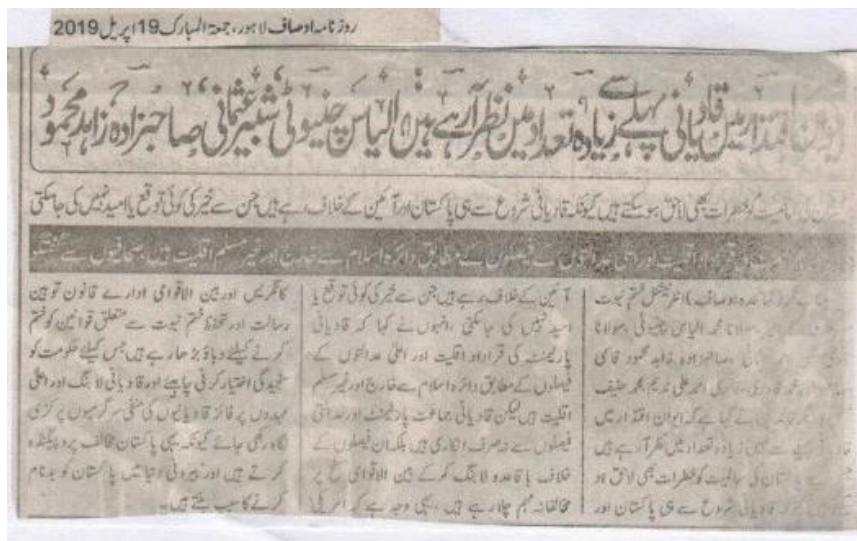 روزنامہ اوصاف لاہور، جمعۃ المبارک 19 اپریل 2019
ایوان اقتدار میں قادیانی پہلے سے زیادہ تعداد میں نظر آ رہے ہیں الیاس چنیوٹی، شبیر عثمانی، صاحبزادہ زاہد محمود
کی سالمیت کو خطرات بھی لاحق ہو سکتے ہیں کیونکہ قادیانی شروع سے ہی پاکستان اور آئین کے خلاف رہے ہیں جن سے خیر کی کوئی توقع یا امید نہیں کی جاسکتی
اقلیت اور اعلیٰ عدالتوں کے فیصلوں کے مطابق دائرہ اسلام سے خارج اور غیر مسلم اقلیت ہیں، صحافیوں سے گفتگو
(نمائندہ اوصاف) انٹرنیشنل ختم نبوت
مولانا محمد الیاس چنیوٹی، مولانا
صاحبزادہ زاہد محمود قاسمی
قاری احمد علی ندیم، محمد حنیف
نے کہا ہے کہ ایوان اقتدار میں
پہلے سے کہیں زیادہ تعداد میں نظر آ رہے ہیں
پاکستان کی سالمیت کو خطرات بھی لاحق ہو
قادیانی شروع سے ہی پاکستان اور
آئین کے خلاف رہے ہیں جن سے خیر کی کوئی توقع یا
امید نہیں کی جاسکتی، انہوں نے کہا کہ قادیانی
پارلیمنٹ کی قرارداد اقلیت اور اعلیٰ عدالتوں کے
فیصلوں کے مطابق دائرہ اسلام سے خارج اور غیر مسلم
اقلیت ہیں لیکن قادیانی جماعت پارلیمنٹ اور عدالتی
فیصلوں سے نہ صرف انکاری ہیں بلکہ ان فیصلوں کے
خلاف باقاعدہ لابنگ کر کے بین الاقوامی سطح پر
مخالفانہ مہم چلا رہے ہیں، یہی وجہ ہے کہ امریکی
کانگریس اور بین الاقوامی ادارے قانون توہین
رسالت اور تحفظ ختم نبوت سے متعلق قوانین کو ختم
کرنے کیلئے دباؤ بڑھا رہے ہیں جس کیلئے حکومت کو
سنجیدگی اختیار کرنی چاہیے اور قادیانی لابنگ اور اعلیٰ
عہدوں پر فائز قادیانیوں کی منفی سرگرمیوں پر کڑی
نگاہ رکھی جائے کیونکہ یہی پاکستان مخالف پروپیگنڈہ
کرتے ہیں اور بیرونی دنیا میں پاکستان کو بدنام
کرنے کا سبب بنتے ہیں۔